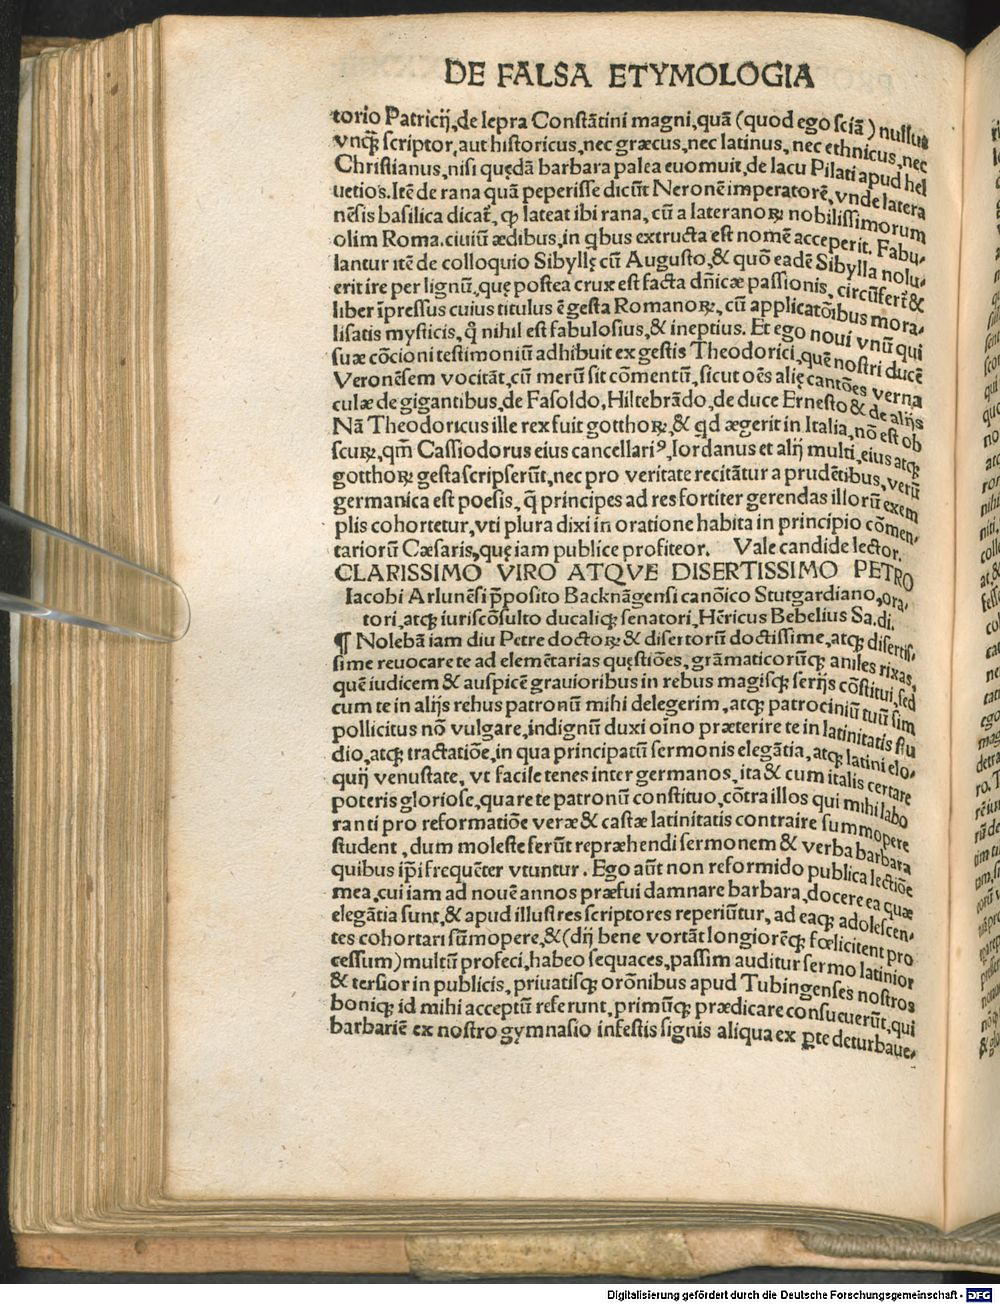 DE FALSA ETYMOLOGIA
torio Patricij, de lepra Constãtini magni, quã (quod ego sciã) nullus
vnq̃ scriptor, aut historicus, nec græcus, nec latinus, nec ethnicus, nec
Christianus, nisi quędã barbara palea euomuit, de lacu Pilati apud hel
uetios. Itẽ de rana quã peperisse dicũt Neronẽ imperatorẽ, vnde latera
nẽsis basilica dicat̃, ꝙ lateat ibi rana, cũ a lateranoꝝ nobilissimorum
olim Roma. ciuiũ ædibus, in qbus extructa est nomẽ acceperit. Fabu⸗
lantur itẽ de colloquio Sibyllę cũ Augusto, & quõ eadẽ Sibylla nolu⸗
erit ire per lignũ, quę postea crux est facta dñicæ passionis, circũfert̃ &
liber ĩpressus cuius titulus ẽ gesta Romanoꝝ, cũ applicatõibus mora⸗
lisatis mysticis, q̃ nihil est fabulosius, & ineptius. Et ego noui vnũ qui
suæ cõcioni testimoniũ adhibuit ex gestis Theodorici, quẽ nostri ducẽ
Veronẽsem vocitãt, cũ merũ sit cõmentũ, sicut oẽs alię cantões verna
culæ de gigantibus, de Fasoldo, Hiltebrãdo, de duce Ernesto & de alijs
Nã Theodoricus ille rex fuit gotthoꝝ, & qd ægerit in Italia, nõ est ob
scuꝝ, qm̃ Cassiodorus eius cancellariꝰ, Iordanus et alij multi, eius atqꝫ
gotthoꝝ gesta scripserũt, nec pro veritate recitãtur a prudẽtibus, verũ
germanica est poesis, q̃ principes ad res fortiter gerendas illorũ exem
plis cohortetur, vti plura dixi in oratione habita in principio cõmen⸗
tariorũ Cæsaris, quę iam publice profiteor. Vale candide lector.
CLARISSIMO VIRO ATQVE DISERTISSIMO PETRO
Iacobi Arlunẽsi p̃posito Backnãgensi canõico Stutgardiano, ora⸗
tori, atqꝫ iuriscõsulto ducaliqꝫ senatori, Hẽricus Bebelius Sa. di.
¶ Nolebã iam diu Petre doctoꝝ & disertorũ doctissime, atqꝫ disertis⸗
sime reuocare te ad elemẽtarias quęstiões, grãmaticorũqꝫ aniles rixas,
quẽ iudicem & auspicẽ grauioribus in rebus magisqꝫ serijs cõstitui, sed
cum te in alijs rebus patronũ mihi delegerim, atqꝫ patrociniũ tuũ sim
pollicitus nõ vulgare, indignũ duxi oĩno præterire te in latinitatis stu
dio, atqꝫ tractatiõe, in qua principatũ sermonis elegãtia, atqꝫ latini elo⸗
quij venustate, vt facile tenes inter germanos, ita & cum italis certare
poteris gloriose, quare te patronũ constituo, cõtra illos qui mihi labo
ranti pro reformatiõe veræ & castæ latinitatis contraire summopere
student, dum moleste ferũt repræhendi sermonem & verba barbara
quibus ip̃i frequẽter vtuntur. Ego aũt non reformido publica lectiõe
mea, cui iam ad nouẽ annos præfui damnare barbara, docere ea quæ
elegãtia sunt, & apud illustres scriptores reperiũtur, ad eaqꝫ adolescen⸗
tes cohortari sũmopere, & (dij bene vortãt longiorẽqꝫ fœlicitent pro
cessum) multũ profeci, habeo sequaces, passim auditur sermo latinior
& tersior in publicis, priuatisqꝫ orõnibus apud Tubingenses nostros
boniqꝫ id mihi acceptũ referunt, primũqꝫ prædicare consueuerũt, qui
barbariẽ ex nostro gymnasio infestis signis aliqua ex ꝑte deturbaue⸗
Digitalisierung gefördert durch die Deutsche Forschungsgemeinschaft - DFG